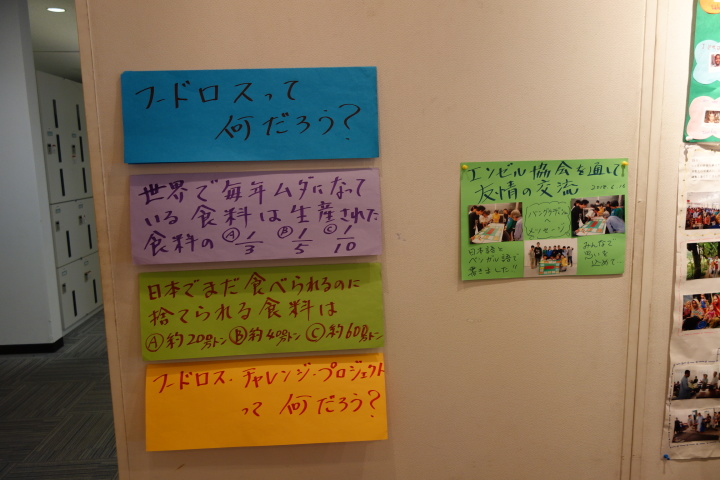 フードロスって
何だろう?
世界で毎年ムダになって
いる食料は生産された
食料の Ⓐ1/3 Ⓑ1/5 Ⓒ1/10
日本でまだ食べられるのに
捨てられる食料は
Ⓐ約200万トン Ⓑ約400万トン Ⓒ約600万トン
フードロス・チャレンジ・プロジェクト
って 何だろう?
エンゼル協会を通して
友情の交流
バングラデシュ
へ
メッセージ
日本語と
ベンガル語で
書きました!!
みんなで
思いを
込めて